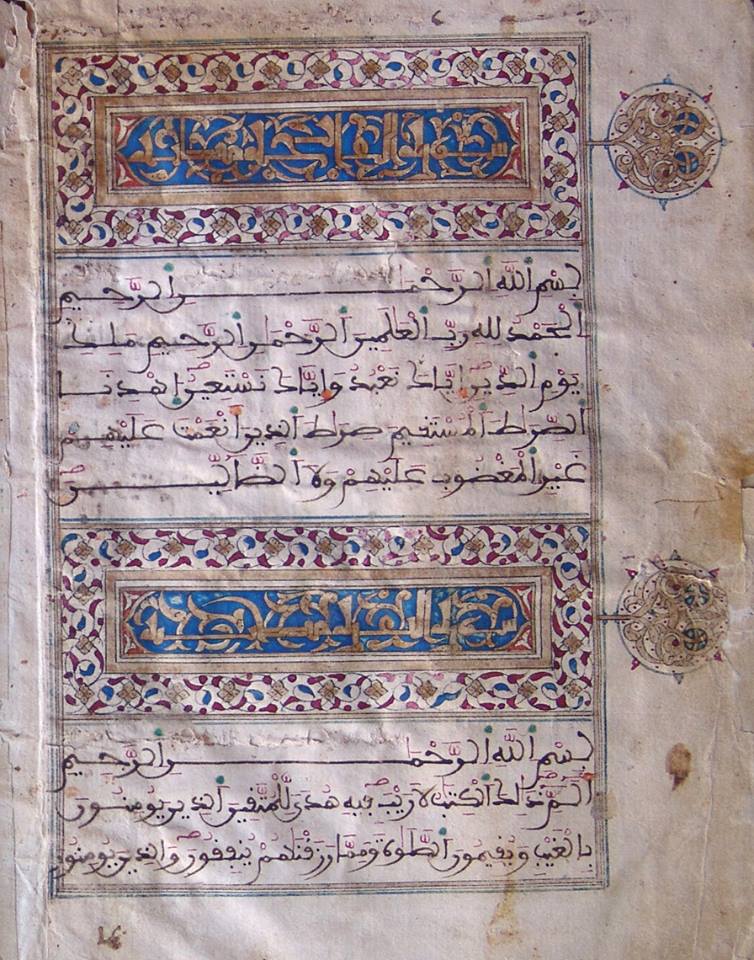 بِسْمِ اللَّهِ الرَّحْمَٰنِ الرَّحِيمِ
الْحَمْدُ لِلهِ رَبِّ الْعَٰلَمِينَ الرَّحْمَٰنِ الرَّحِيمِ مَلِكِ
يَوْمِ الدِّينِ إِيَّاكَ نَعْبُدُ وَإِيَّاكَ نَسْتَعِينُ اهْدِنَا
الصِّرَٰطَ الْمُسْتَقِيمَ صِرَٰطَ الَّذِينَ أَنْعَمْتَ عَلَيْهِمْ
غَيْرِ الْمَغْضُوبِ عَلَيْهِمْ وَلَا الضَّالِّينَ
بِسْمِ اللَّهِ الرَّحْمَٰنِ الرَّحِيمِ
الم ذَٰلِكَ الْكِتَٰبُ لَا رَيْبَ فِيهِ هُدًى لِّلْمُتَّقِينَ الَّذِينَ يُومِنُونَ
بِالْغَيْبِ وَيُقِيمُونَ الصَّلَوٰةَ وَمِمَّا رَزَقْنَٰهُمْ يُنفِقُونَ وَالَّذِينَ يُومِنُونَ